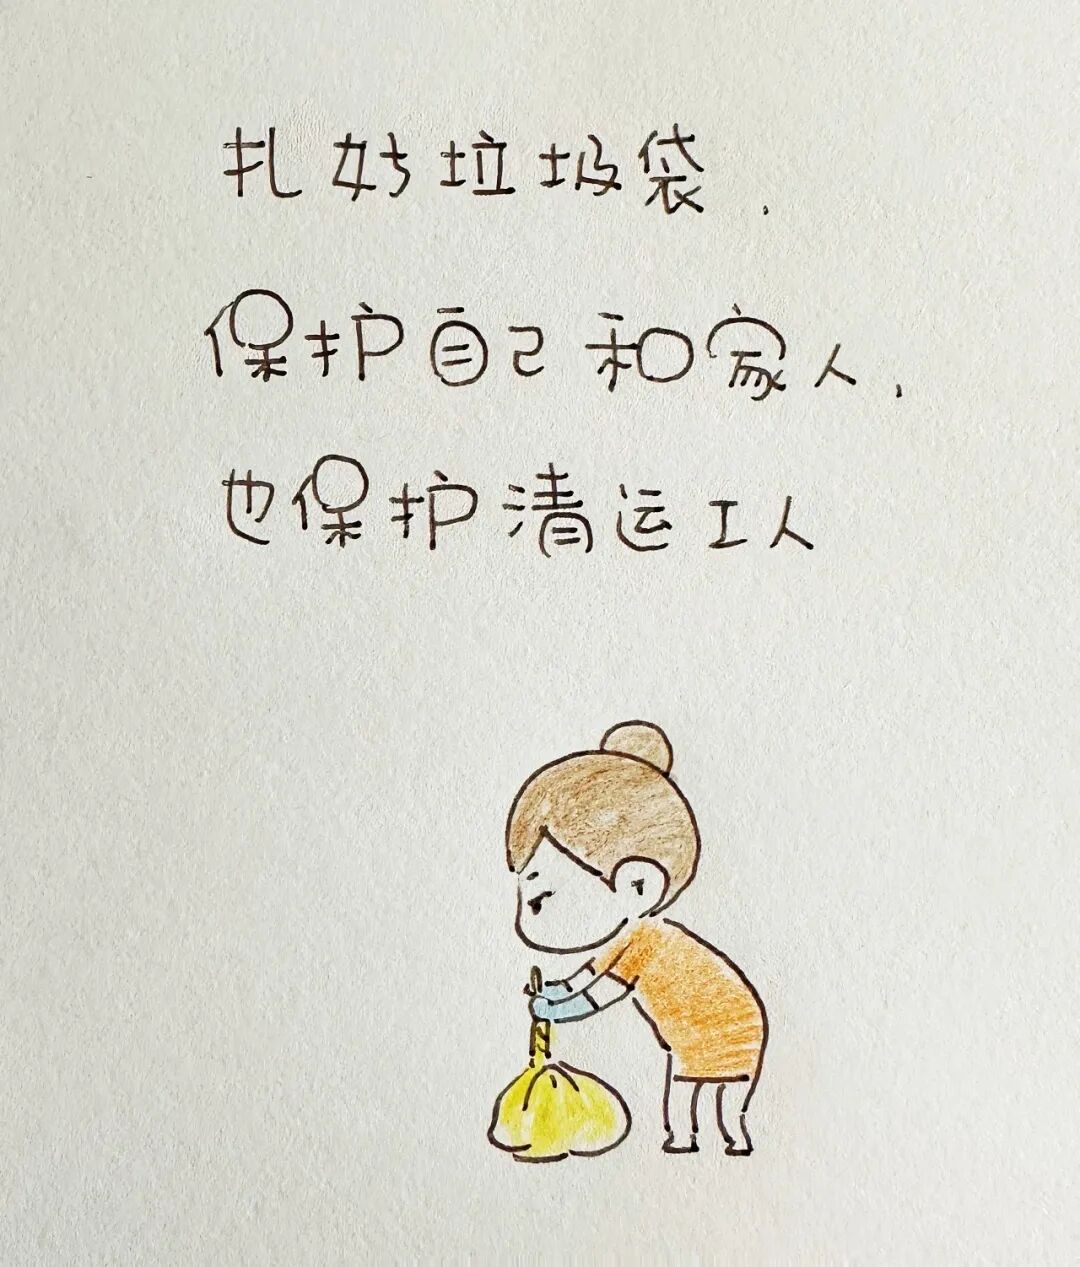 扎好垃圾袋，
保护自己和家人，
也保护清运工人